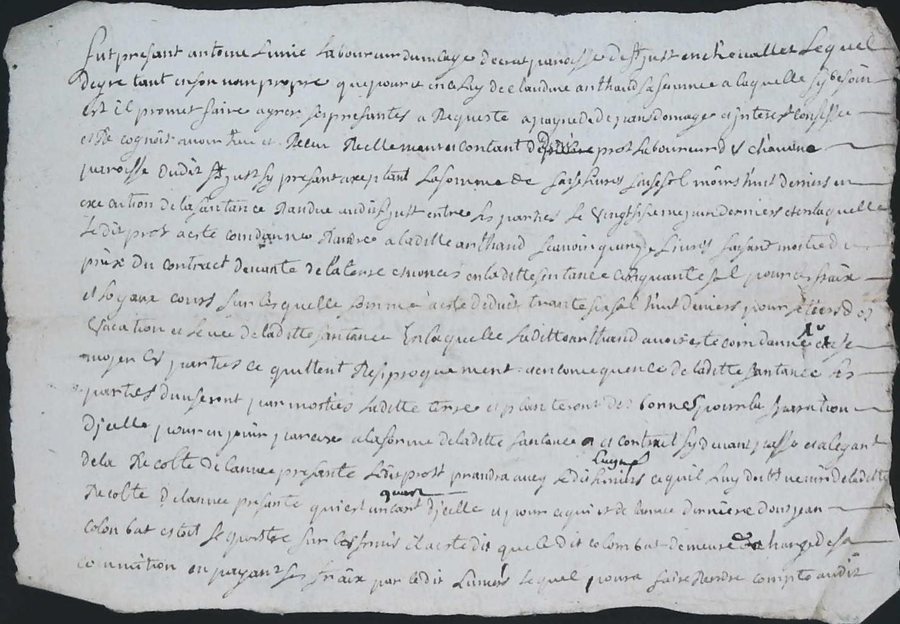 fut presant antoine Lunie Laboureur du vilage de crat parroisse de st just en chevallet Lequel
de gre tant en son nom propre que pour et en celuy de claudine arthaud sa femme a laquelle sy besoin
est il promet faire agreer ses presantes a Requeste a payne de depans domages et interest Confesse
et Recognoit avoir heu et Receu Reellement et contant de prost Laboureur du chevine
parroisse dudit st just sy presant axeptant La somme de sase sol moins huit deniers en
execution de la santance Randue audit st just entre Les parties Le vingt juin derniers et en laquelle
Ledit prost a este condanne Randre a laditte arthaud scavoir quinze Livres fasant mostie du
prix du contract de vante de la terre enonces en laditte santance cinquante sol pour les fraix
et Loyaux couts sur Lesquelle somme a este deduit trante sol huit deniers pour
vacation et Levee de laditte santance En laquelle Laditte arthaud avoir este condannee
moyen les parties ce quittent Resiproquement en consequence de laditte santance Les
parties diviseront par mostie Laditte terre et planteront des bornes pour la separation
djcelle pour en jouir a la forme de laditte santance et contract sy devant passe et a legard
de la Recolte de lannee presante Ledit prost prandra avec Ledit Lunie ce quil luy doibt venir de laditte
Recolte de lannee presante qui est un cart quart djcelle et pour ce qui est de lannee derniere dont jean
colombat estoit sequestre sur Les fruis il a este dit que Ledit colombat demeure de charge de sa
commition en payant Les fraix par Ledit Lunie Lequel poura faire Rendre compte audit